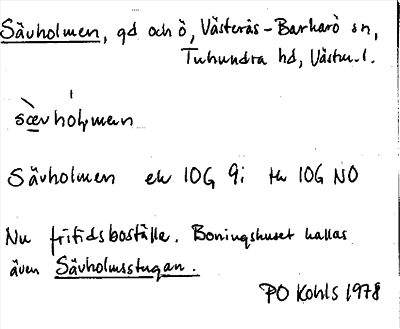 Sävholmen, gd och ö, Västerås-Barkarö sn,
Tuhundra hd, Västm. l.
sævhol̥men
Sävholmen ek 10G 9i tk 10G NO
Nu fritidsboställe. Boningshuset kallas
även Sävholmsstugan.
PO Kohls 1978